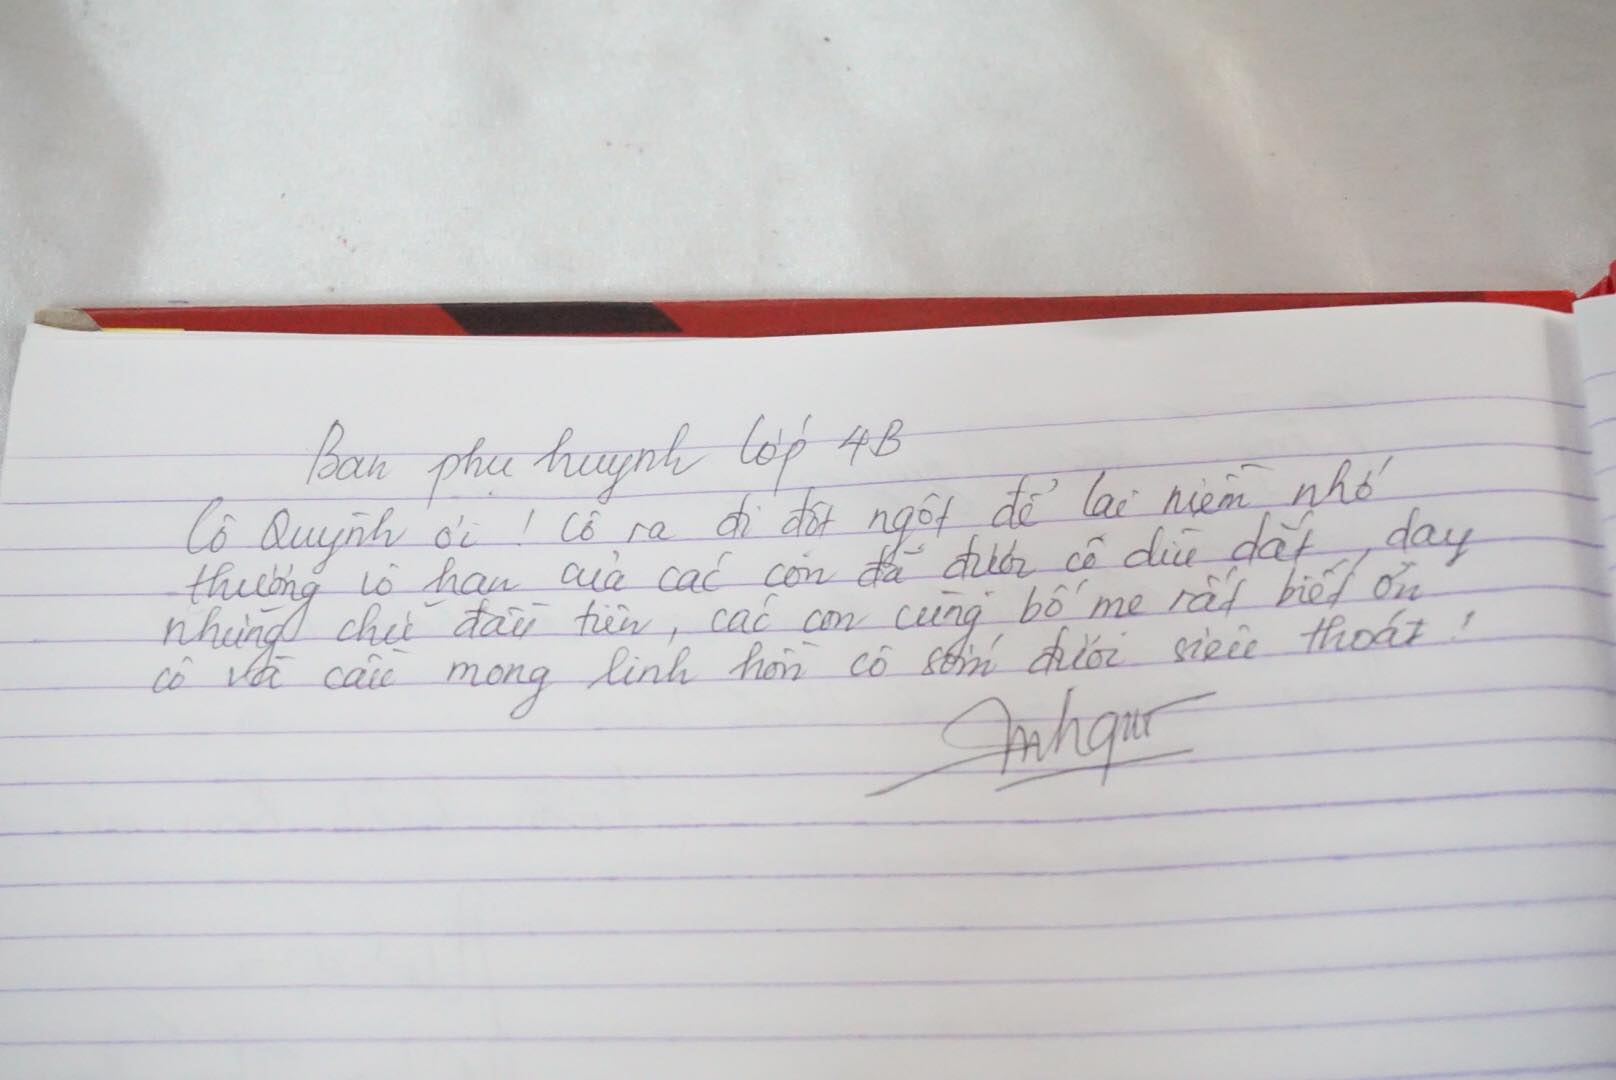 Ban phụ huynh lớp 4B
Cô Quỳnh ơi! Cô ra đi đột ngột để lại niềm nhớ
thương vô hạn của các con đã được cô dìu dắt, dạy
những chữ đầu tiên, các con cùng bố mẹ rất biết ơn
cô và cầu mong linh hồn cô sớm được siêu thoát!